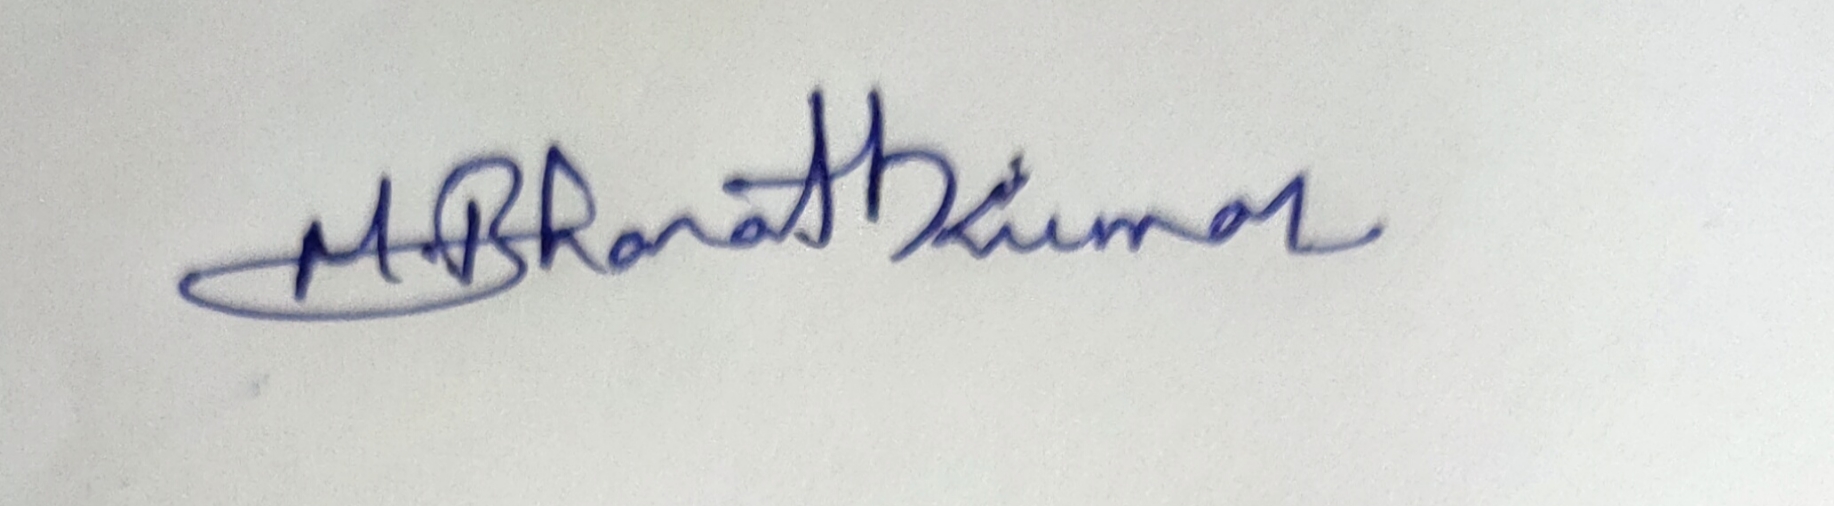 M. Bharath Kumar